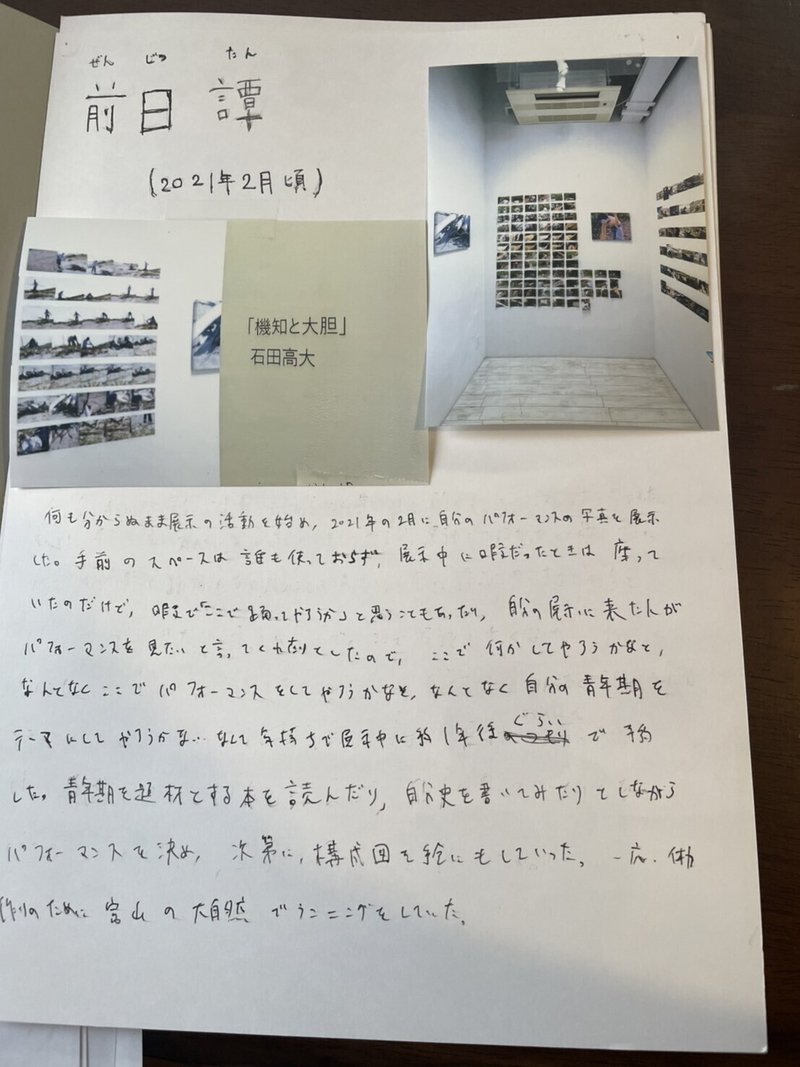 ぜん じつ たん
前日譚
(2021年2月頃)
「機知と大胆」
石田高大
何も分からぬまま展示の活動を始め、2021年の2月に自分のパフォーマンスの写真を展示
した。手前のスペースは誰も使っておらず、展示中に暇だったときは座って
いたのだけど、暇で「ここで踊ってやろうか」と思うこともあったり、自分の展示に来た人が
パフォーマンスを見たいと言ってくれたりとしたので、ここで何かしてやろうかなと、
なんとなくここでパフォーマンスをしてやろうかなと、なんとなく自分の青年期を
テーマにしてやろうかな、なんて気持ちで展示中に約1年後ぐらいで予約
した。青年期を題材とする本を読んだり、自分史を書いてみたりとしながら
パフォーマンスを決め、次第に、構成図を絵にもしていった。一応、体力
作りのために富山の大自然でランニングをしていた。